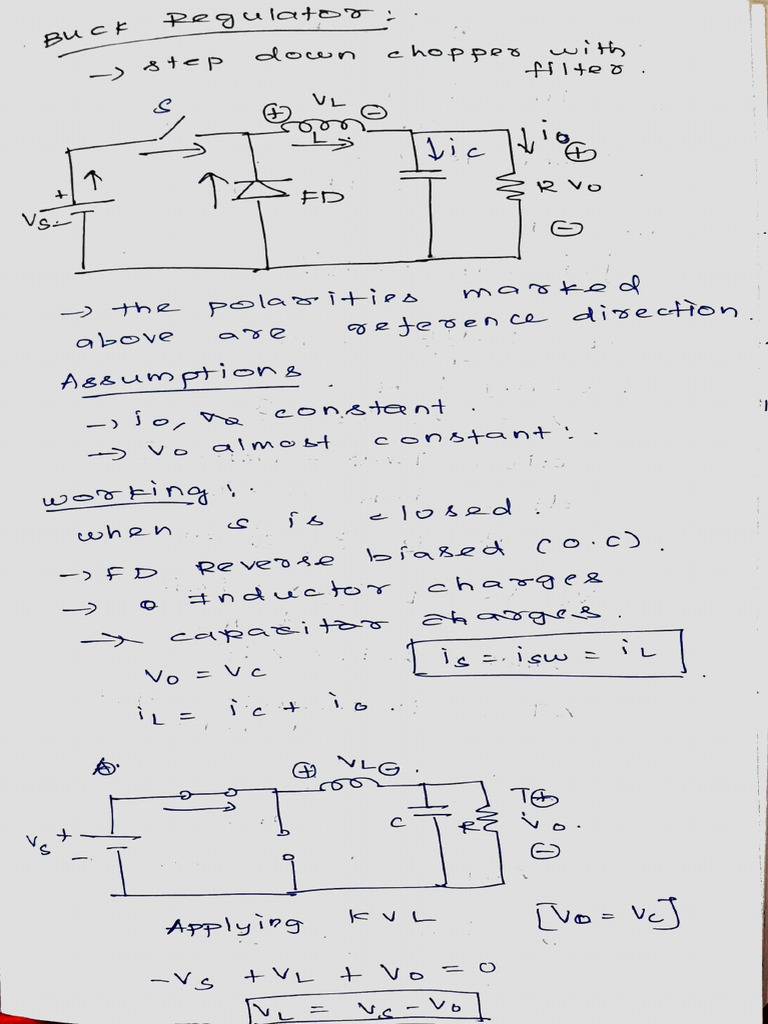 Buck Regulator :.
→ step down chopper with
filter.
S
⊕ VL ⊖
L
↓ic
↓io
⊕
+
Vs
-
FD
R Vo
⊖
→ the polarities marked
above are reference direction.
Assumptions
→ io, constant.
→ Vo almost constant :.
working :.
when s is closed.
→ FD Reverse biased (o.c).
→ Inductor charges
→ capacitor charges.
is = isw = iL
Vo = Vc
iL = ic + io.
⊕ VL ⊖.
Vs + -
C
R
⊕
Vo.
⊖
Applying KVL [Vo = Vc]
-Vs + VL + Vo = 0
VL = Vs - Vo